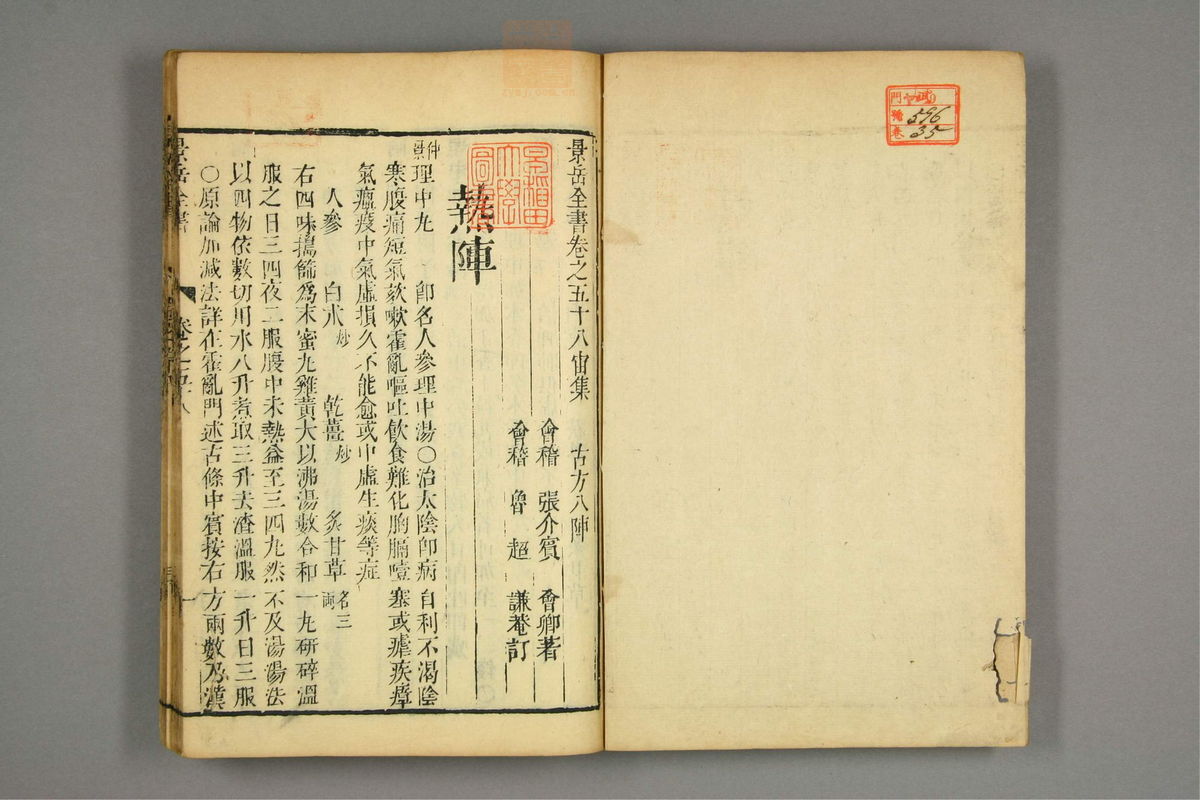 門
號 596
卷 35
景岳全書卷之五十八宙集 古方八陣
會稽 張介賓 會卿著
會稽 魯超 謙菴訂
早稲田
大學
圖書
熱陣
仲景理中丸 即名人參理中湯○治太陰即病自利不渴陰
寒腹痛短氣欬嗽霍亂嘔吐飲食難化胸膈噎塞或瘧疾瘴
氣瘟疫中氣虛損久不能愈或中虛生痰等症
人參 白朮炒 乾薑炒 炙甘草各三兩
右四味搗篩為末蜜丸雞黃大以沸湯數合和一丸研碎溫
服之日三四夜二服腹中未熱益至三四丸然不及湯湯法
以四物依數切用水八升煮取三升去渣溫服一升日三服
○原論加減法詳在霍亂門述古條中賓按右方兩數乃漢
景岳全書 卷之五十八